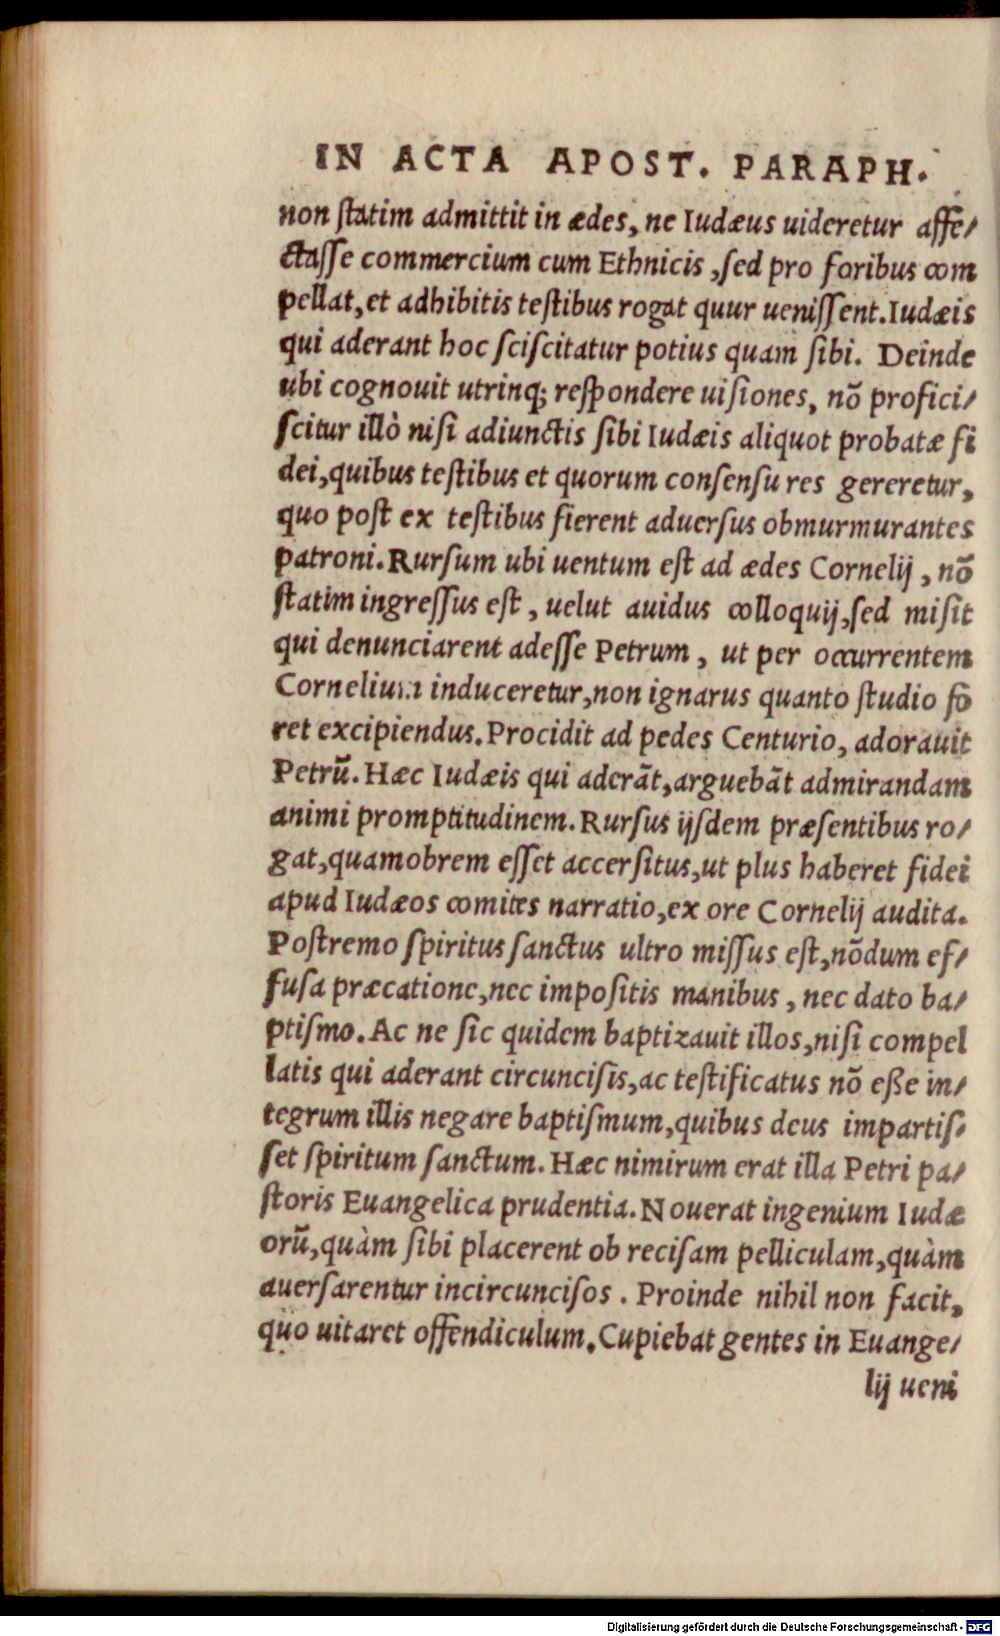 IN ACTA APOST. PARAPH.
non ſtatim admittit in ædes, ne Iudæus uideretur affe/
ctaſſe commercium cum Ethnicis, ſed pro foribus com
pellat, et adhibitis teſtibus rogat quur ueniſſent. Iudæis
qui aderant hoc ſciſcitatur potius quam ſibi. Deinde
ubi cognouit utrinq; reſpondere uiſiones, nõ profici/
ſcitur illò niſi adiunctis ſibi Iudæis aliquot probatæ fi
dei, quibus teſtibus et quorum conſenſu res gereretur,
quo poſt ex teſtibus fierent aduerſus obmurmurantes
patroni. Rurſum ubi uentum eſt ad ædes Cornelij, nõ
ſtatim ingreſſus eſt, uelut auidus colloquij, ſed miſit
qui denunciarent adeſſe Petrum, ut per occurrentem
Cornelium induceretur, non ignarus quanto ſtudio fo
ret excipiendus. Procidit ad pedes Centurio, adorauit
Petrũ. Hæc Iudæis qui aderãt, arguebãt admirandam
animi promptitudinem. Rurſus ijſdem præſentibus ro/
gat, quamobrem eſſet accerſitus, ut plus haberet fidei
apud Iudæos comites narratio, ex ore Cornelij audita.
Poſtremo ſpiritus ſanctus ultro miſſus eſt, nõdum ef/
fuſa præcatione, nec impoſitis manibus, nec dato ba/
ptiſmo. Ac ne ſic quidem baptizauit illos, niſi compel
latis qui aderant circunciſis, ac teſtificatus nõ eße in/
tegrum illis negare baptiſmum, quibus deus impartiſ/
ſet ſpiritum ſanctum. Hæc nimirum erat illa Petri pa/
ſtoris Euangelica prudentia. Nouerat ingenium Iudæ
orũ, quàm ſibi placerent ob reciſam pelliculam, quàm
auerſarentur incircunciſos. Proinde nihil non facit,
quo uitaret offendiculum. Cupiebat gentes in Euange/
lij ueni
Digitalisierung gefördert durch die Deutsche Forschungsgemeinschaft - DFG